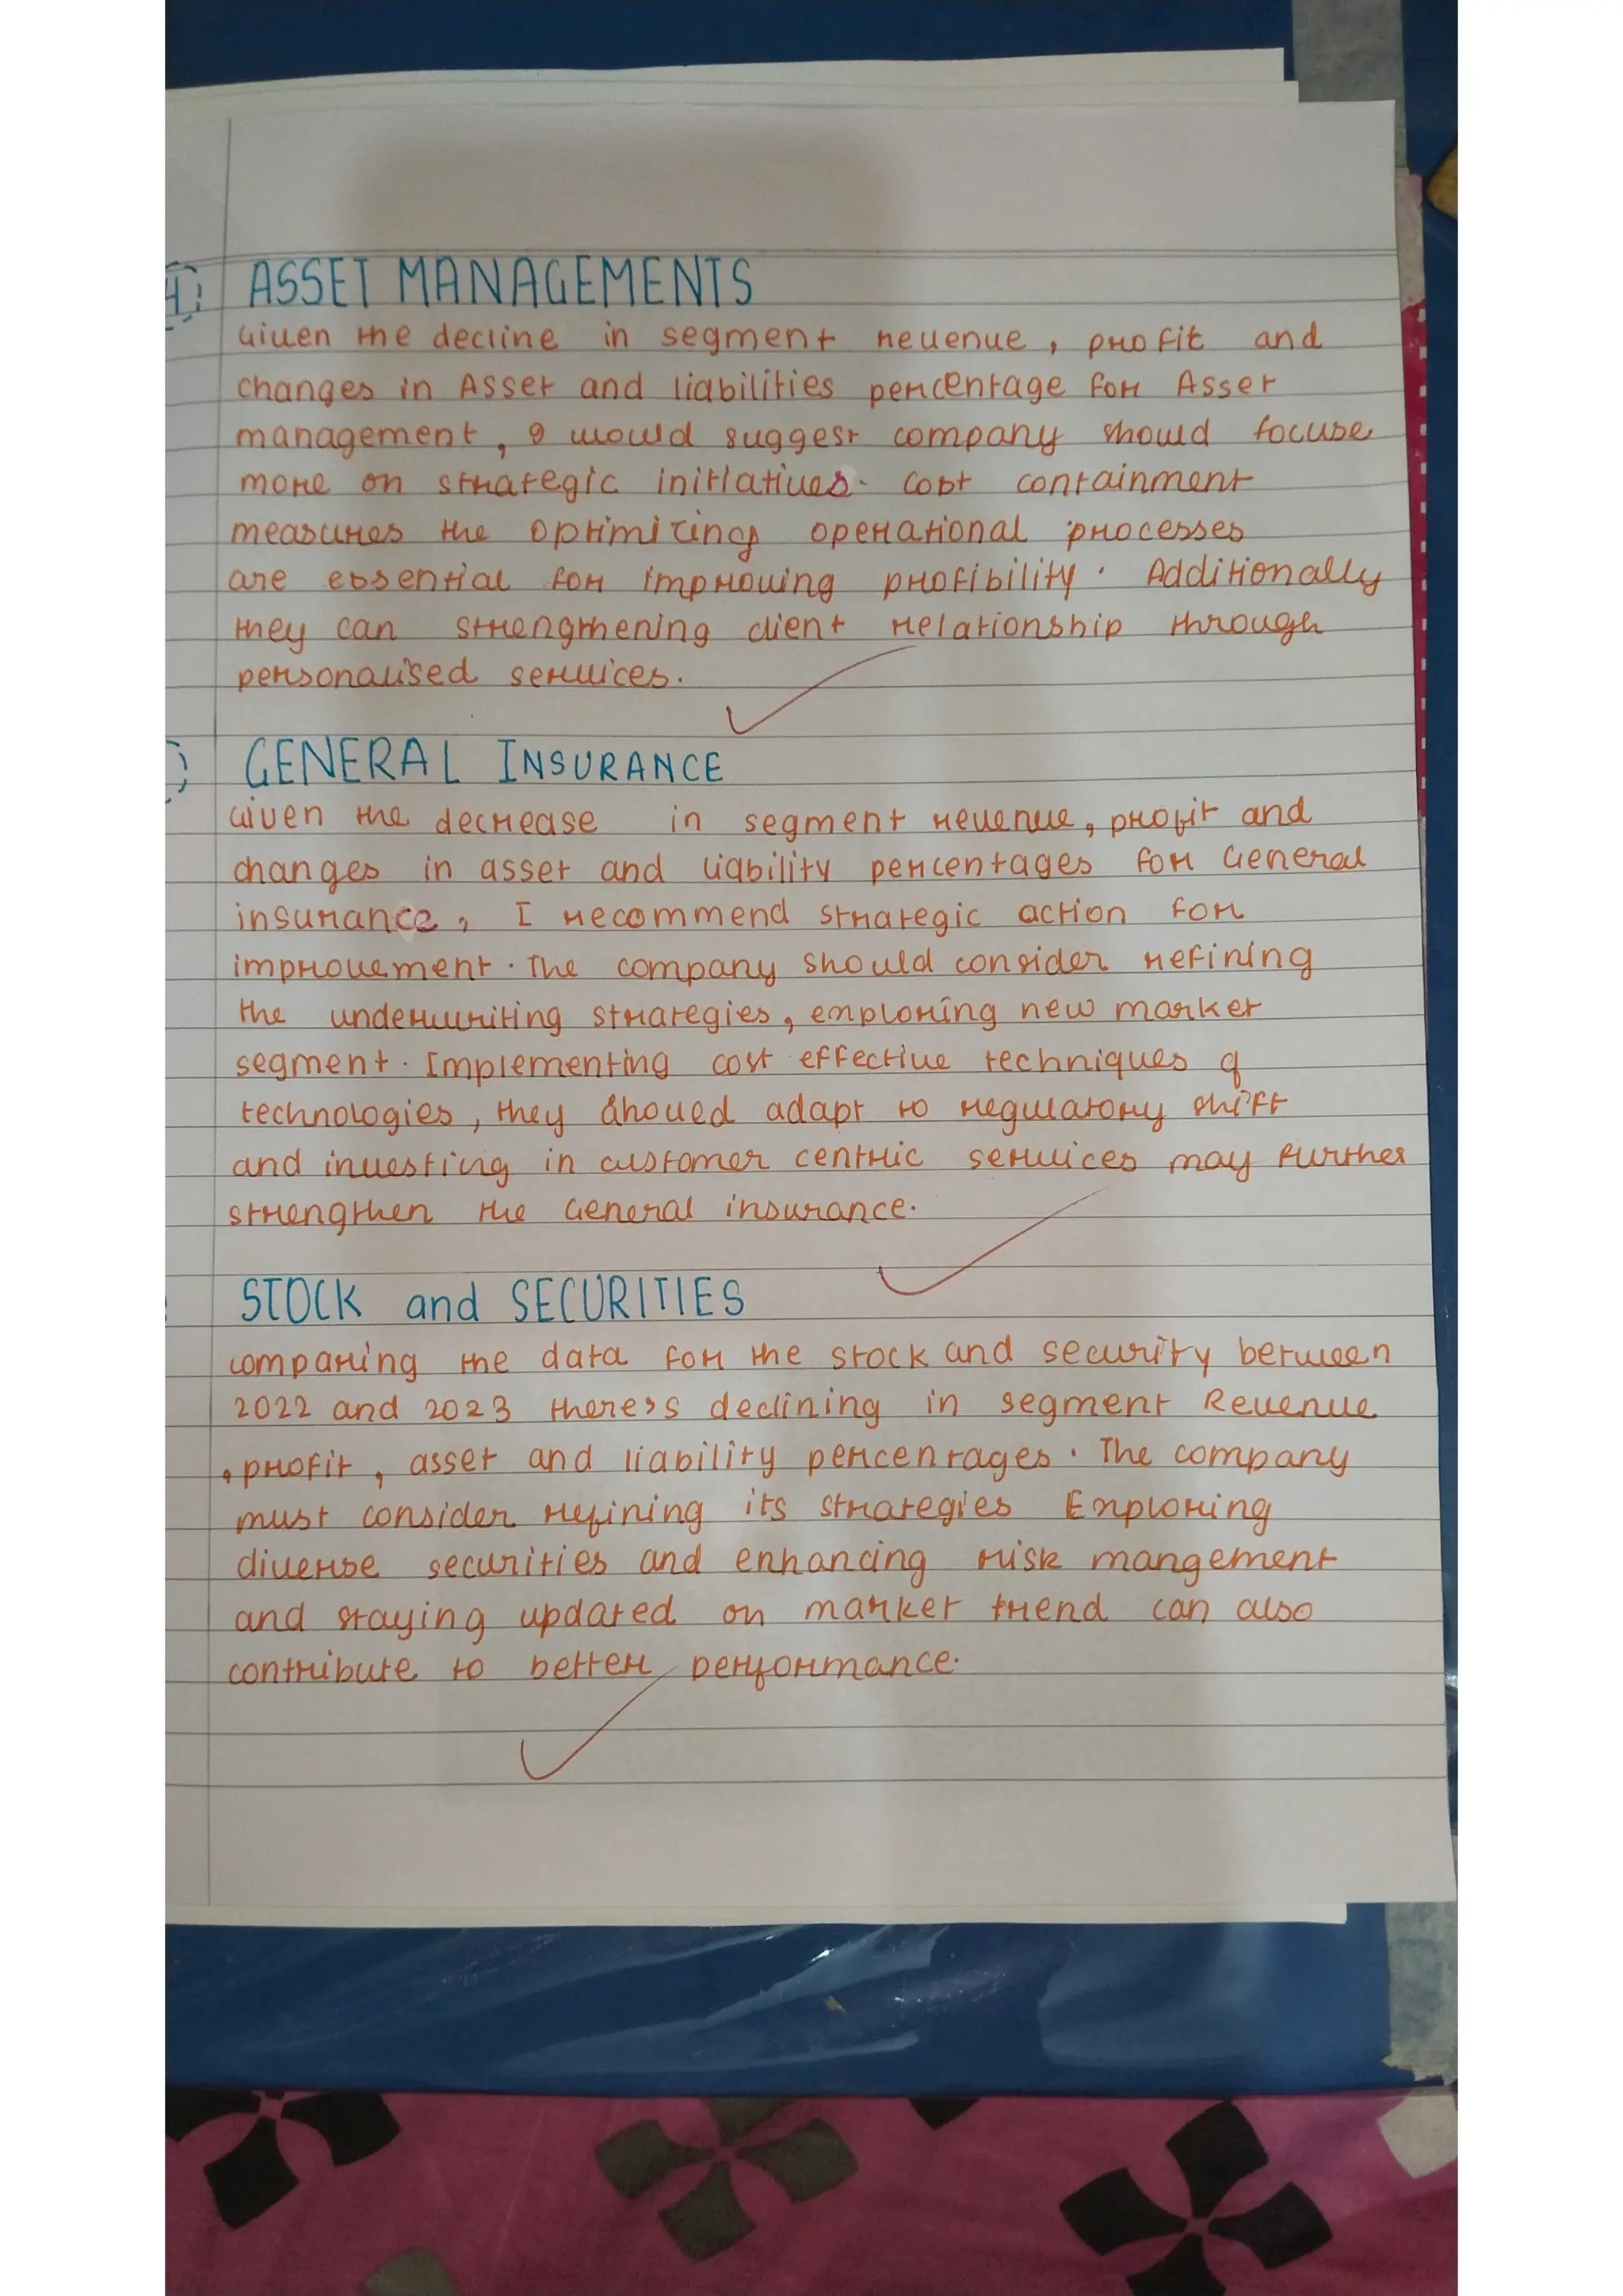 4) ASSET MANAGEMENTS
Given the decline in segment revenue, profit and
changes in Asset and liabilities percentage for Asset
management, I would suggest company should focuse
more on strategic initiatives. Cost containment
measures the optimizing operational processes
are essential for improving profibility. Additionally
they can strengthening client relationship through
personalised services.
GENERAL INSURANCE
Given the decrease in segment revenue, profit and
changes in asset and liability percentages for General
insurance, I recommend strategic action for
improvement. The company should consider refining
the underwriting strategies, exploring new market
segment. Implementing cost effective techniques of
technologies, they should adapt to regulatory shift
and investing in customer centric services may further
strengthen the General insurance.
STOCK and SECURITIES
Comparing the data for the stock and security between
2022 and 2023 there's declining in segment Revenue
, profit, asset and liability percentages. The company
must consider refining its strategies Exploring
diverse securities and enhancing risk mangement
and staying updated on market trend can also
contribute to better performance.